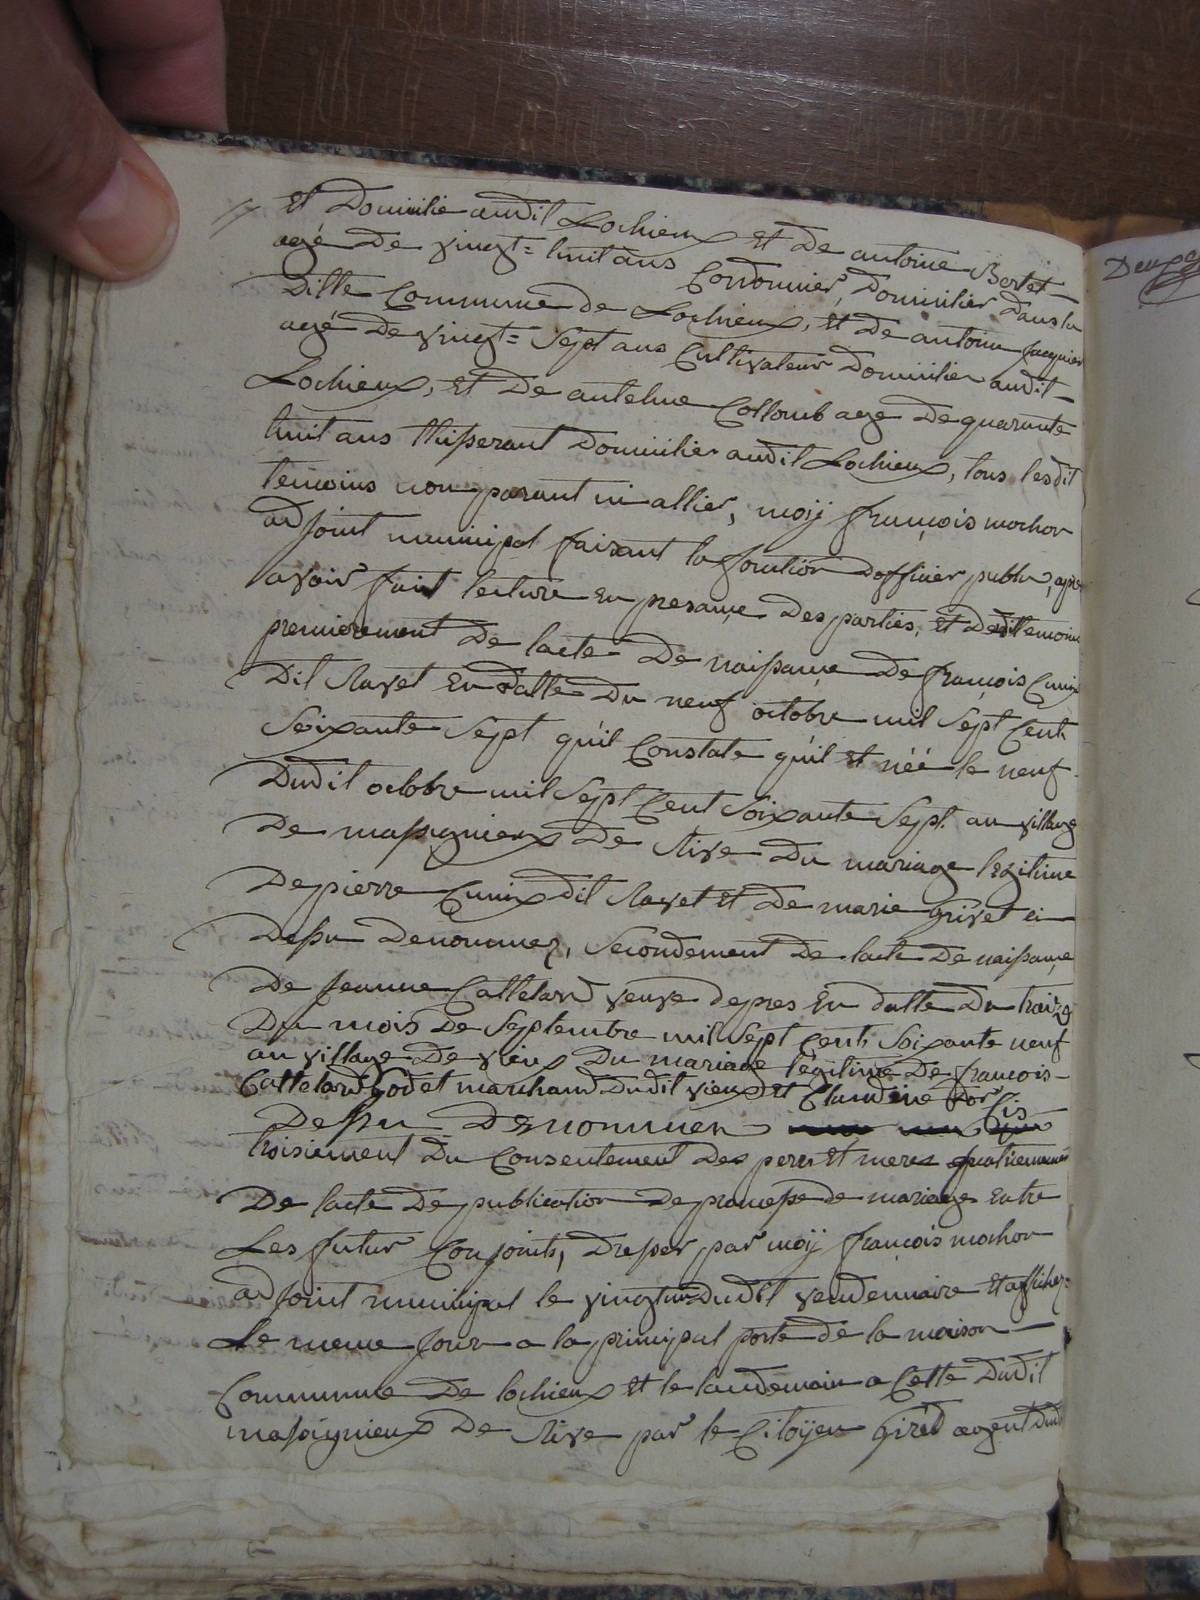 et Domicilie audit Lochieux et De antoine Bertet
agé De vingt=huit ans Cordonnier, Domicilier Dans la
Ditte Commune de Lochieux, et De antoine Jacquier
agé De vingt=sept ans Cultivateur Domicilier audit
Lochieux, et De antelme Colloub age De quarante
huit ans thisserant Domicilier audit Lochieux, tous lesdit
temoins non parant ni allier, moij françois mochon
adjoint municipal faisant la fonction Dofficier public, apres
avoir fait lecture en presance Des parties, et Desdit temoins
premierement De lacte De naissance De françois Cunix
Dit Ravet En datte Du neuf octobre mil Sept Cent
Soixante Sept qu'il Constate qu'il et néé le neuf
Dudit octobre mil Sept Cent Soixante Sept. au village
De massignieux De Rive Du mariage legitime
De pierre Cunix dit Ravet et De marie grivet ci
Dessu Denommez, Secondement De lacte De naissance
De Jeanne Cattelard veuve depres En datte Du traize
Du mois De Septembre mil Sept Cent Soixante neuf
au village De vieux Du mariage légitime De françois
Cattelard Godet marchand Dudit vieux et Claudine
Cis
Dessu Denommer
troisiement Du Consentement Des peres et meres quatriemement
De lacte De publication De promesse de mariage Entre
Les futur Conjoints, Dresser par moij françois mochon
adjoint municipal le vingt un Dudit vendemiaire et afficher
Le meme Jour a la principal porte De la maison
Commune De lochieux et le landemain a Cette Dudit
massignieux De Rive par le Citoijen Girèd agent Dud
Deux